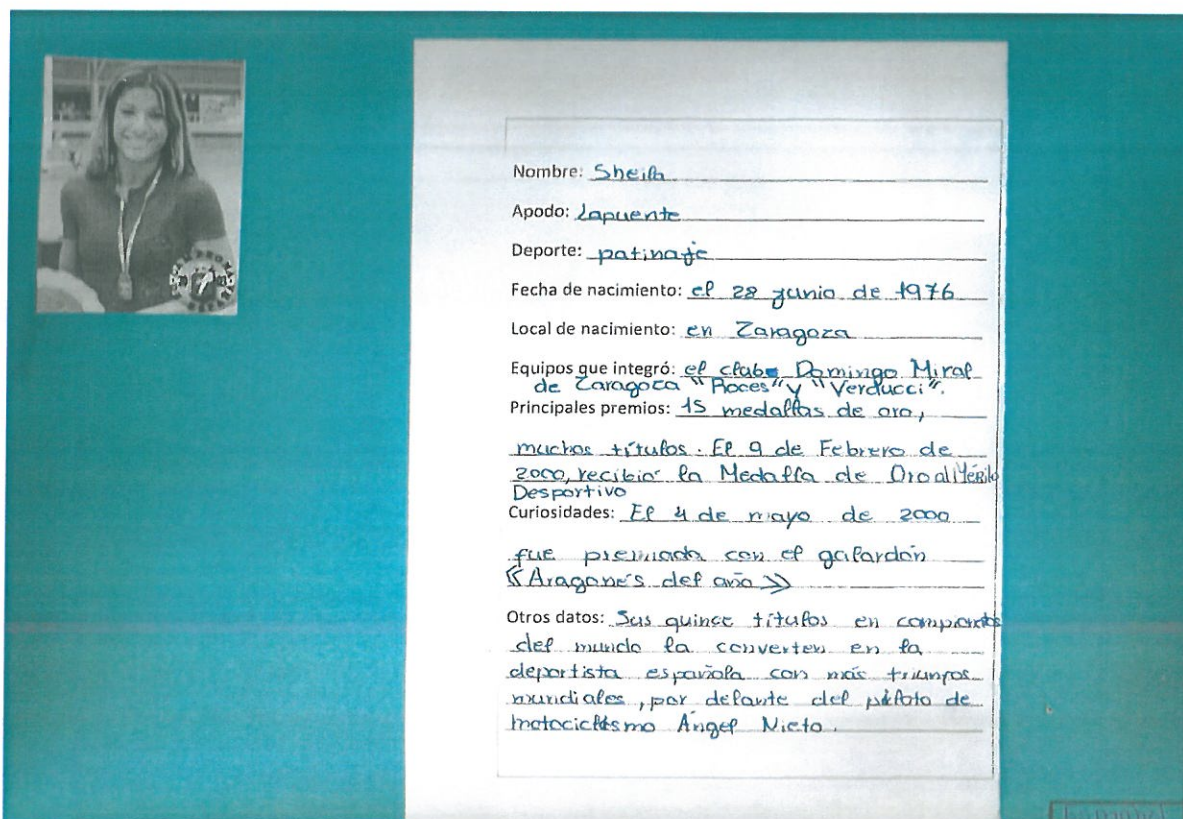 Nombre: Sheila
Apodo: Lapuente
Deporte: patinaje
Fecha de nacimiento: el 28 junio de 1976
Local de nacimiento: en Zaragoza
Equipos que integró: el club Domingo Miral
de Zaragoza "Roces" y "Verducci".
Principales premios: 15 medallas de oro,
muchos títulos. El 9 de Febrero de
2000, recibió la Medalla de Oro al Mérito
Desportivo
Curiosidades: El 4 de mayo de 2000
fue premiada con el galardón
«Aragonés del año»
Otros datos: Sus quince títulos en
del mundo la converten en la
deportista española con más triunfos
mundiales, por delante del piloto de
motociclismo Ángel Nieto.